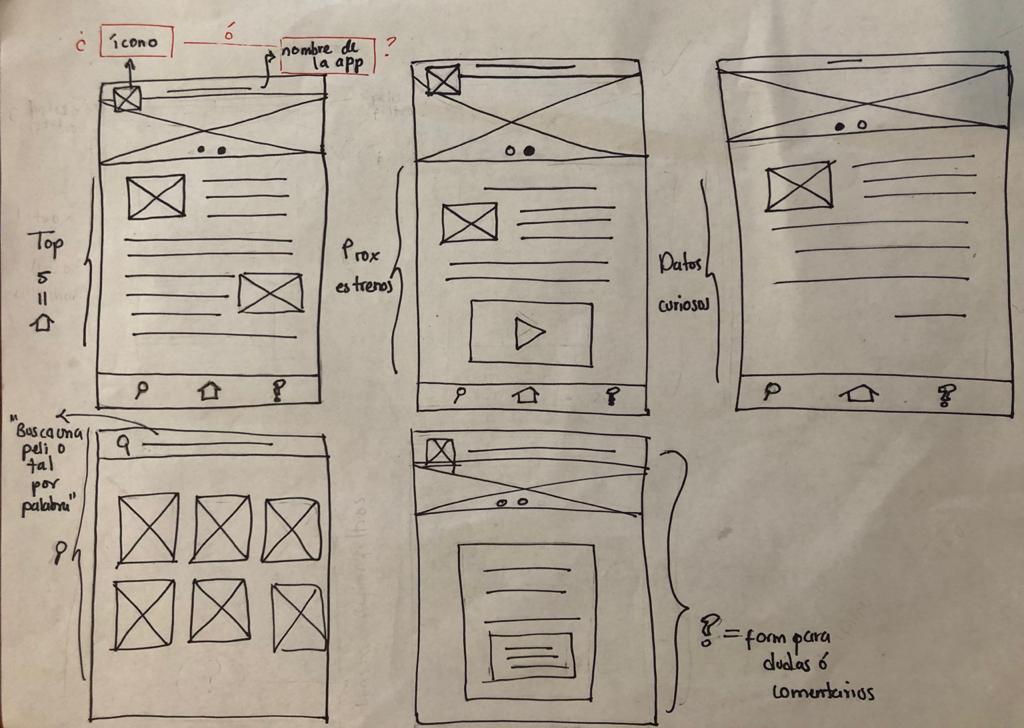 ¿ ícono ó nombre de
la app ?
Top
5
=
Prox
estrenos
Datos
curiosos
"Busca una
peli o
tal
por
palabra"
? = form para
dudas ó
comentarios